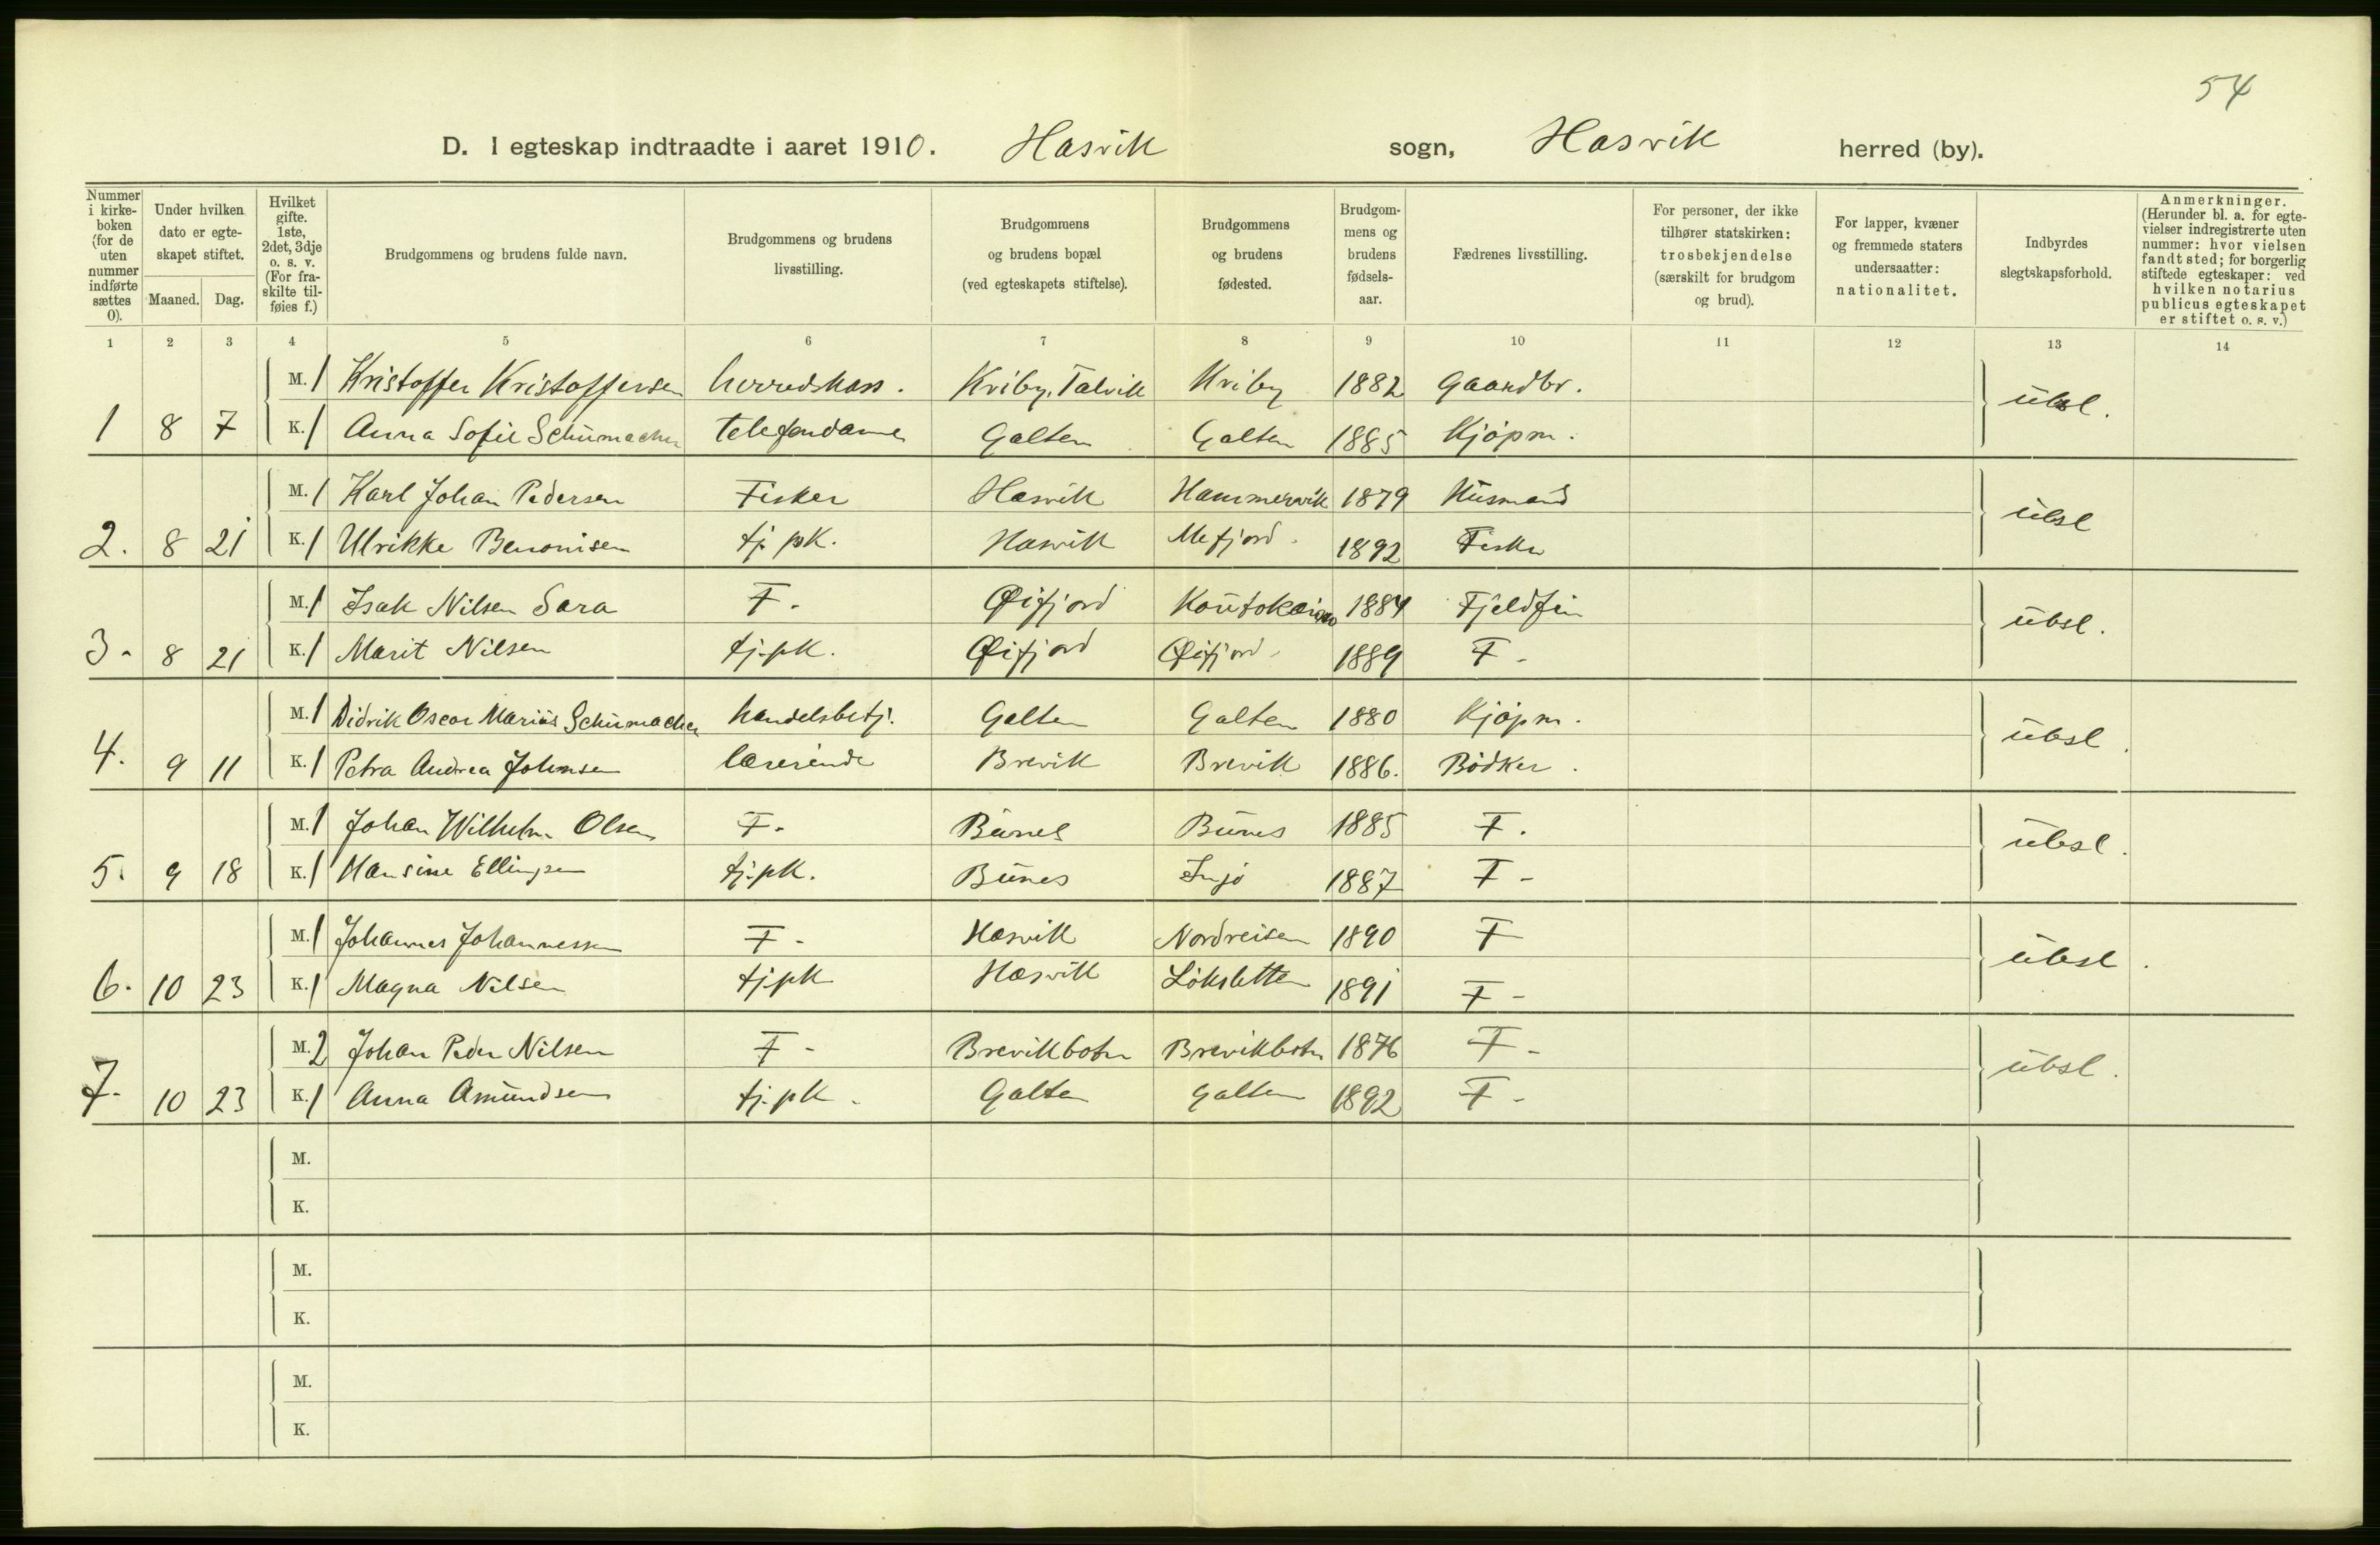 54
D. I egteskap indtraadte i aaret 1910. Hasvik sogn, Hasvik herred (by).
Nummer i kirke- boken (for de uten nummer indførte sættes 0).
Under hvilken dato er egte- skapet stiftet.
Maaned. Dag.
Hvilket gifte. 1ste, 2det, 3dje o. s. v. (For fra- skilte til- føies f.)
Brudgommens og brudens fulde navn.
Brudgommens og brudens livsstilling.
Brudgommens og brudens bopæl (ved egteskapets stiftelse).
Brudgommens og brudens fødested.
Brudgom- mens og brudens fødsels- aar.
Fædrenes livsstilling.
For personer, der ikke tilhører statskirken: trosbekjendelse (særskilt for brudgom og brud).
For lapper, kvæner og fremmede staters undersaatter: nationalitet.
Indbyrdes slegtskapsforhold.
Anmerkninger. (Herunder bl. a. for egte- vielser indregistrerte uten nummer: hvor vielsen fandt sted; for borgerlig stiftede egteskaper: ved hvilken notarius publicus egteskapet er stiftet o. s. v.)
1 2 3 4 5 6 7 8 9 10 11 12 13 14
M. 1 Kristoffer Kristoffersen herredskass. Kviby, Talvik Kviby 1882 Gaardbr. ubsl.
1 8 7 K. 1 Anna Sofie Schumacher Telefondame Galten Galten 1885 Kjøpm.
M. 1 Karl Johan Pedersen Fisker Hasvik Hammervik 1879 Husmand ubsl
2. 8 21 K. 1 Ulrikke Benonisen tj. pk. Hasvik Mefjord. 1892 Fisker
M. 1 Isak Nilsen Sara F. Øifjord Koutokeino 1884 Fjeldfin ubsl.
3. 8 21 K. 1 Marit Nilsen tj.pk. Øifjord Øifjord 1889 F.
M. 1 Didrik Oscar Marius Schumacher handelsbetj. Galten Galten 1880 Kjøpm. ubsl.
4. 9 11 K. 1 Petra Andrea Johnsen lærerinde Brevik Brevik 1886. Bødker.
M. 1 Johan Wilhelm Olsen F. Bunes Bunes 1885 F. ubsl.
5. 9 18 K. 1 Hansine Ellingsen tj.pk. Bunes Ingø 1887 F.
M. 1 Johannes Johannessen F. Hasvik Nordreisen 1890 F ubsl.
6. 10 23 K. 1 Magna Nilsen tj.pk Hasvik Løksletten 1891 F.
M. 2 Johan Peder Nilsen F. Brevikbotn Brevikbotn 1876 F. ubsl.
7. 10 23 K. 1 Anna Amundsen tj.pk. Galten Galten 1892 F.
M.
K.
M.
K.
M.
K.